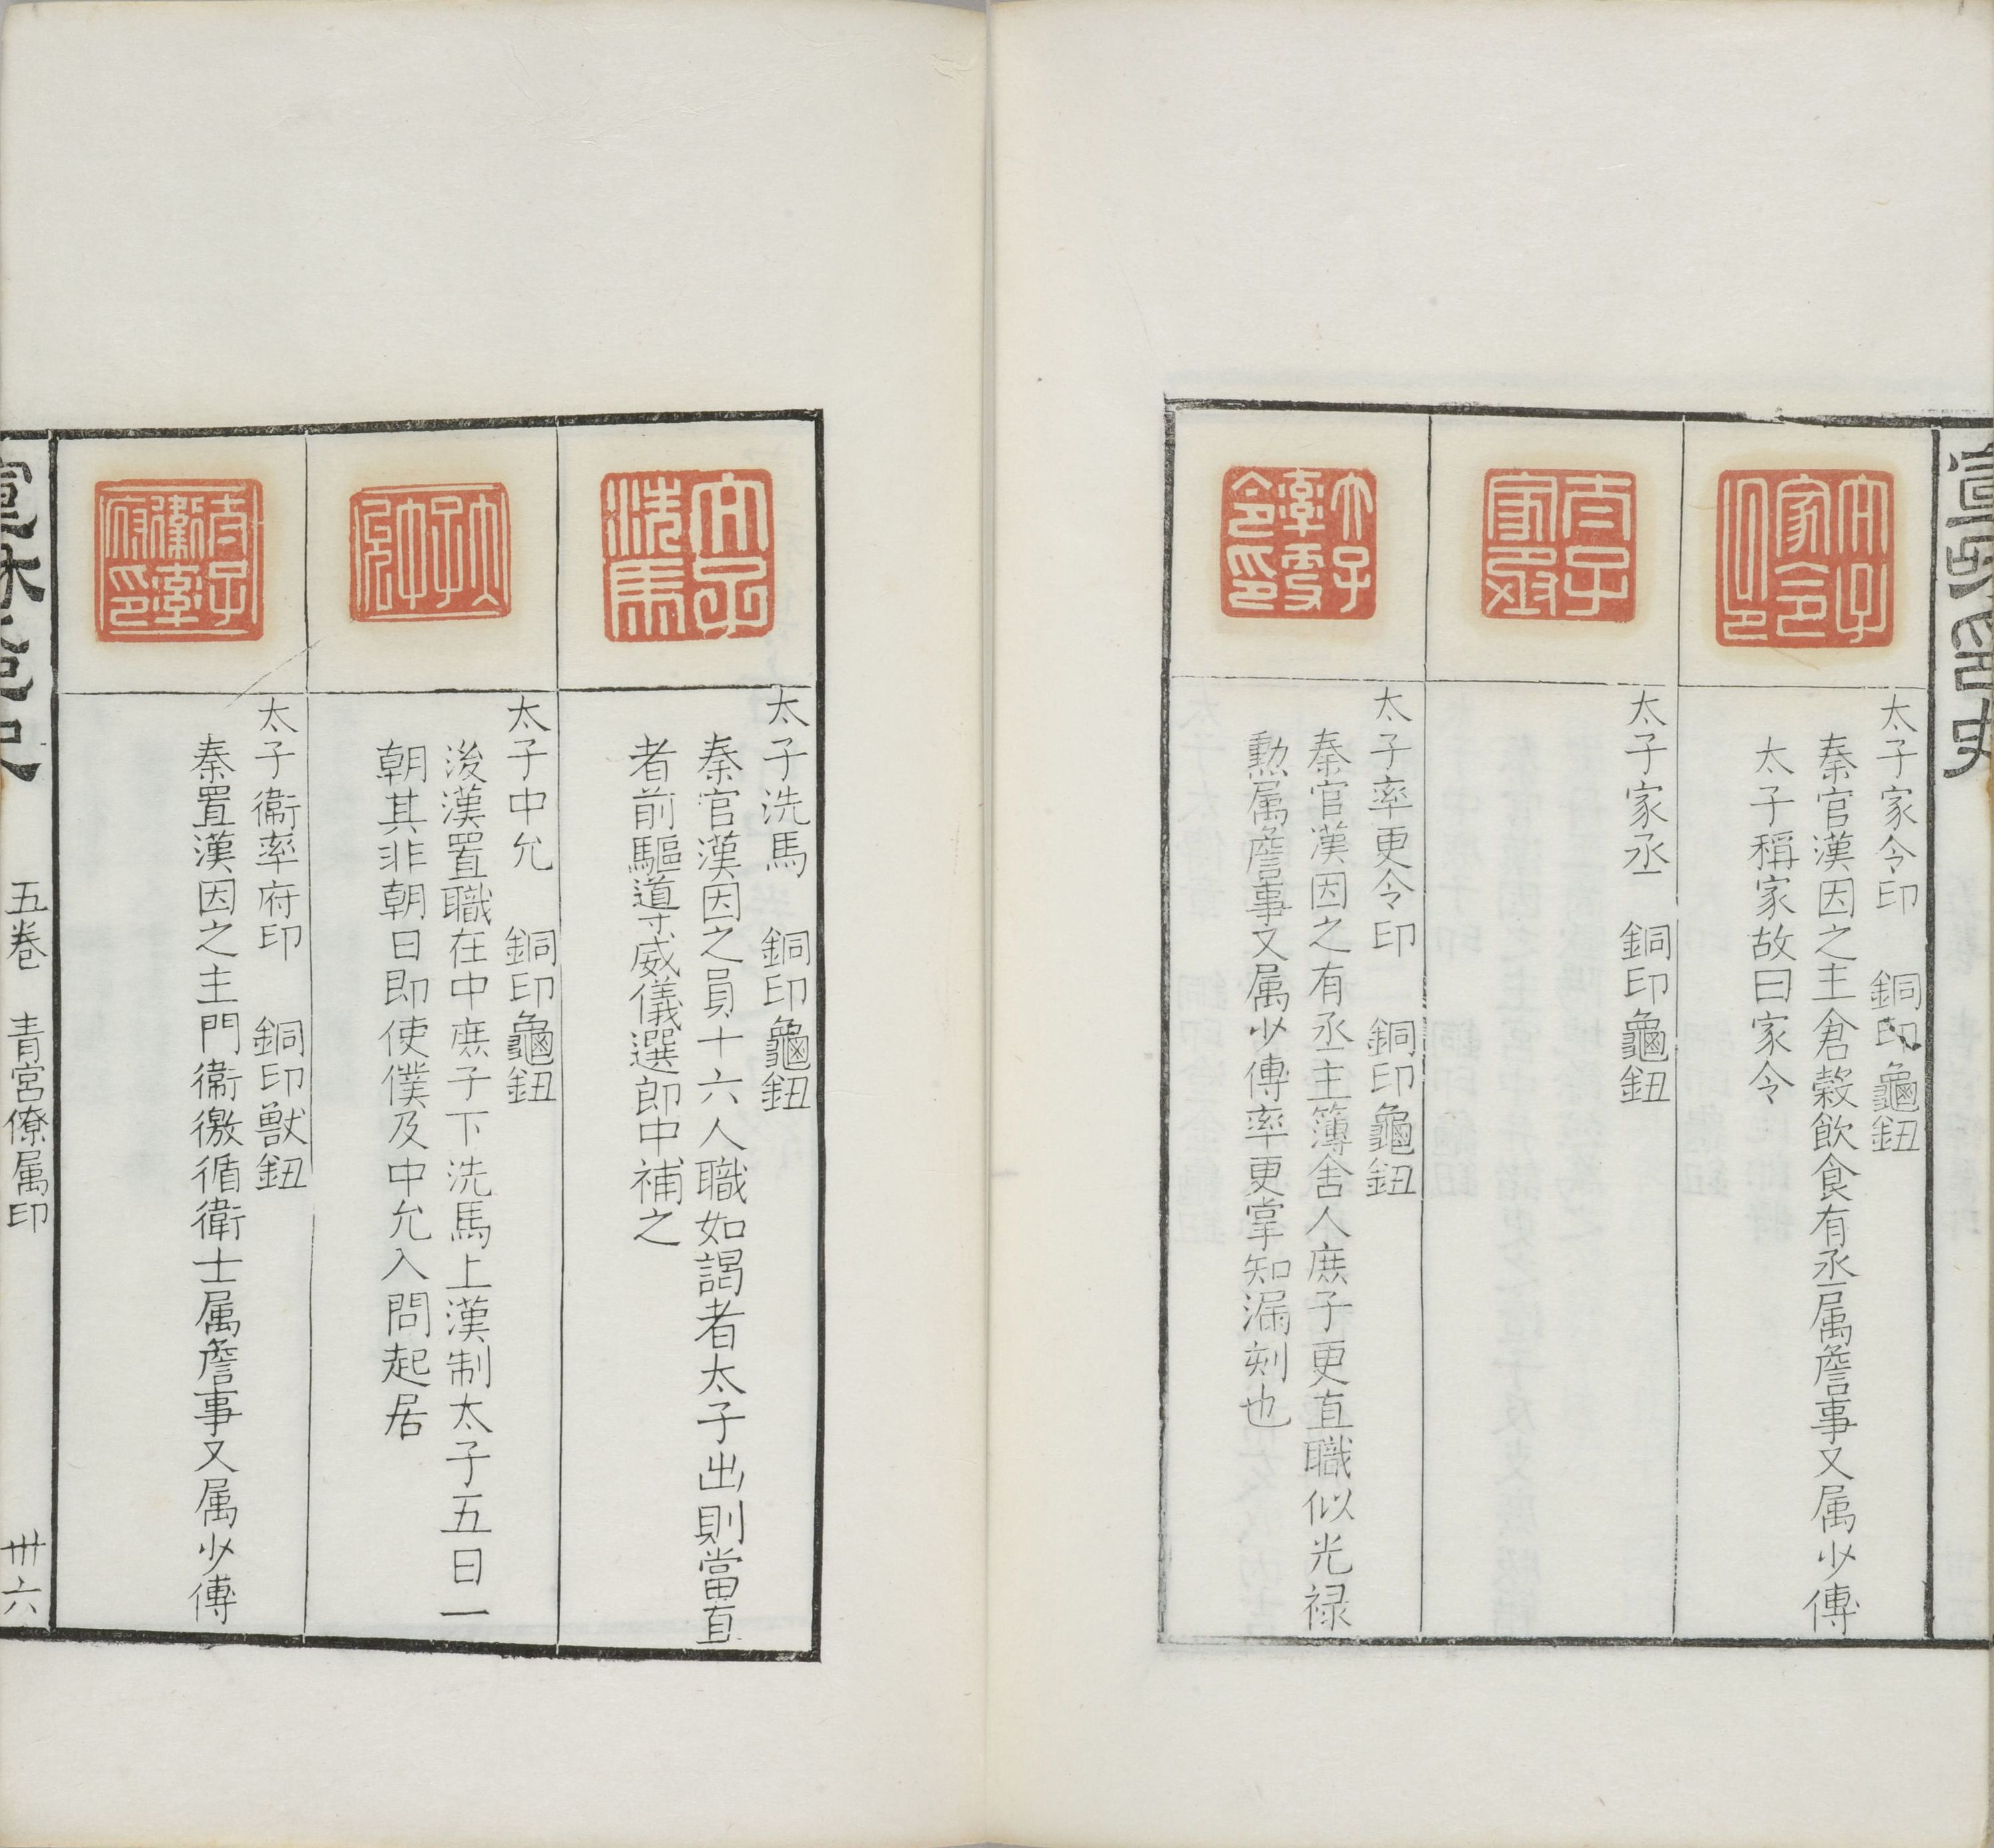 太子家令印　銅印龜鈕
秦官漢因之主倉穀飲食有丞属詹事又属少傅
太子稱家故曰家令
太子家丞　銅印龜鈕
太子率更令印　銅印龜鈕
秦官漢因之有丞主簿舍人庶子更直職似光禄
勲属詹事又属少傅率更掌知漏刻也
太子家令印
太子家丞
太子率更令印
太子洗馬　銅印龜鈕
秦官漢因之員十六人職如謁者太子出則當直
者前驅導威儀選郎中補之
太子中允　銅印龜鈕
後漢置職在中庶子下洗馬上漢制太子五日一
朝其非朝日即使僕及中允入問起居
太子衞率府印　銅印獸鈕
秦置漢因之主門衞徼循衛士属詹事又属少傅
太子洗馬
太子中允
太子衞率府印
五卷　青宮僚属印　卅六